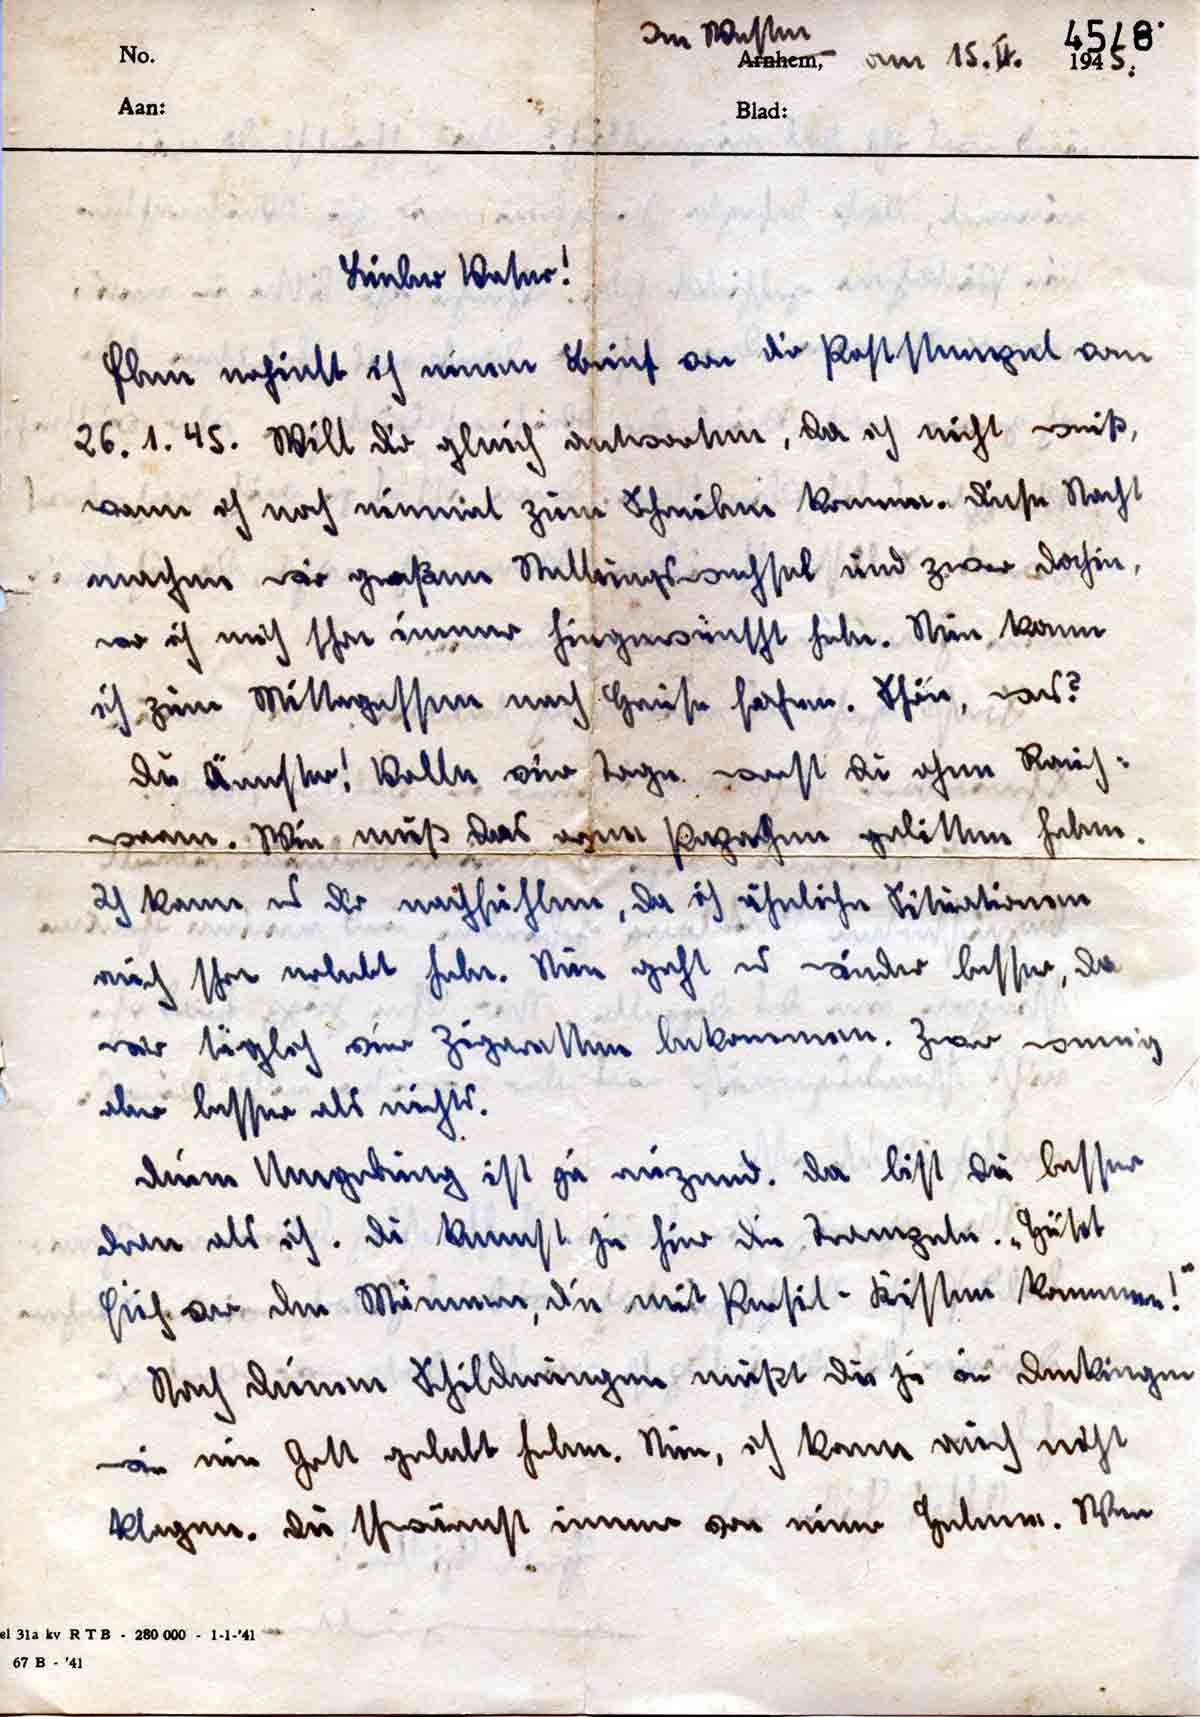 No.
Im Westen
Arnhem, am 15.II. 1945.
4518
Aan:
Blad:
Lieber Vater!
Eben erhielt ich einen Brief von dir Poststempel vom
26.1.45. Will dir gleich antworten, da ich nicht weiß,
wann ich noch einmal zum Schreiben komme. Diese Nacht
machen wir großen Stellungswechsel und zwar dorhin,
wo ich mich schon immer hingewünscht habe. Nun kann
ich zum Mittagessen nach Hause fahren. Schön, was?
Du Ärmster! Volle vier Tage warst du ohne Rauch-
waren. Wie muß das arme gelitten haben.
Ich kann es dir nachfühlen, da ich ähnliche Situationen
auch schon erlebt habe. Nun geht es wieder besser, da
wir täglich vier Zigaretten bekommen. Zwar wenig
aber besser als nichts.
Deine Umgebung ist ja reizend. Da bist du besser
dran als ich. Du kennst ja hier die Trampeln. „Hütet
Euch vor den Männern, die mit Persil-Kisten kommen!"
Nach deinen Schilderungen mußt du ja in
wie ein Gott gelebt haben. Nun, ich kann auch nicht
klagen. Du schwärmst immer von einer Wer
el 31a kv R T B - 280 000 - 1-1-'41
67 B - '41